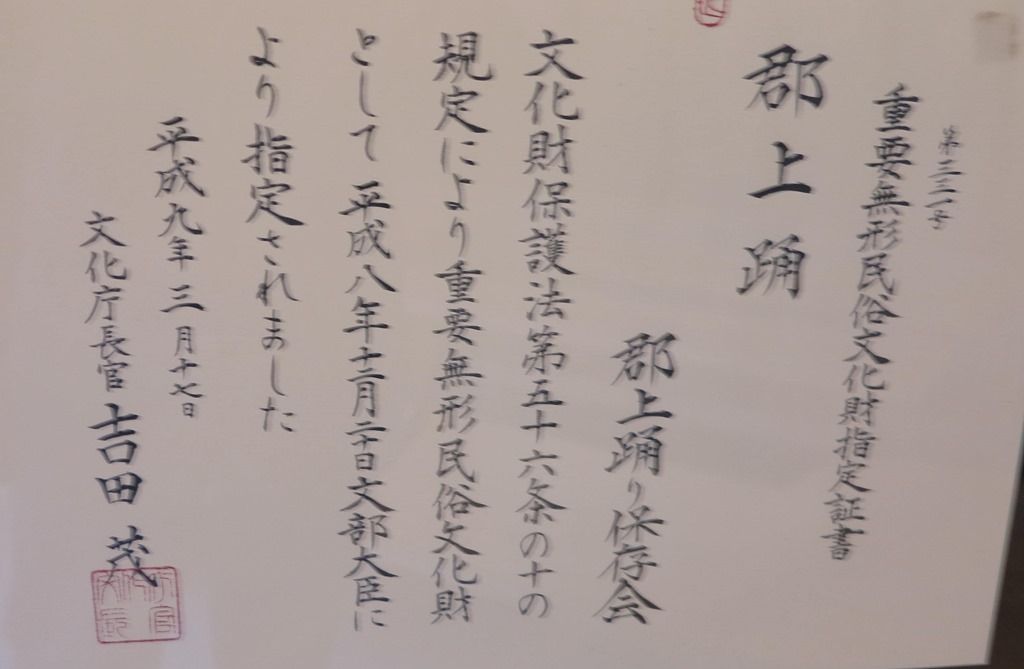 第二三一号
重要無形民俗文化財指定証書
郡上踊
郡上踊り保存会
文化財保護法第五十六条の十の
規定により重要無形民俗文化財
として平成八年十二月二十日文部大臣に
より指定されました
平成九年三月十七日
文化庁長官 吉田 茂